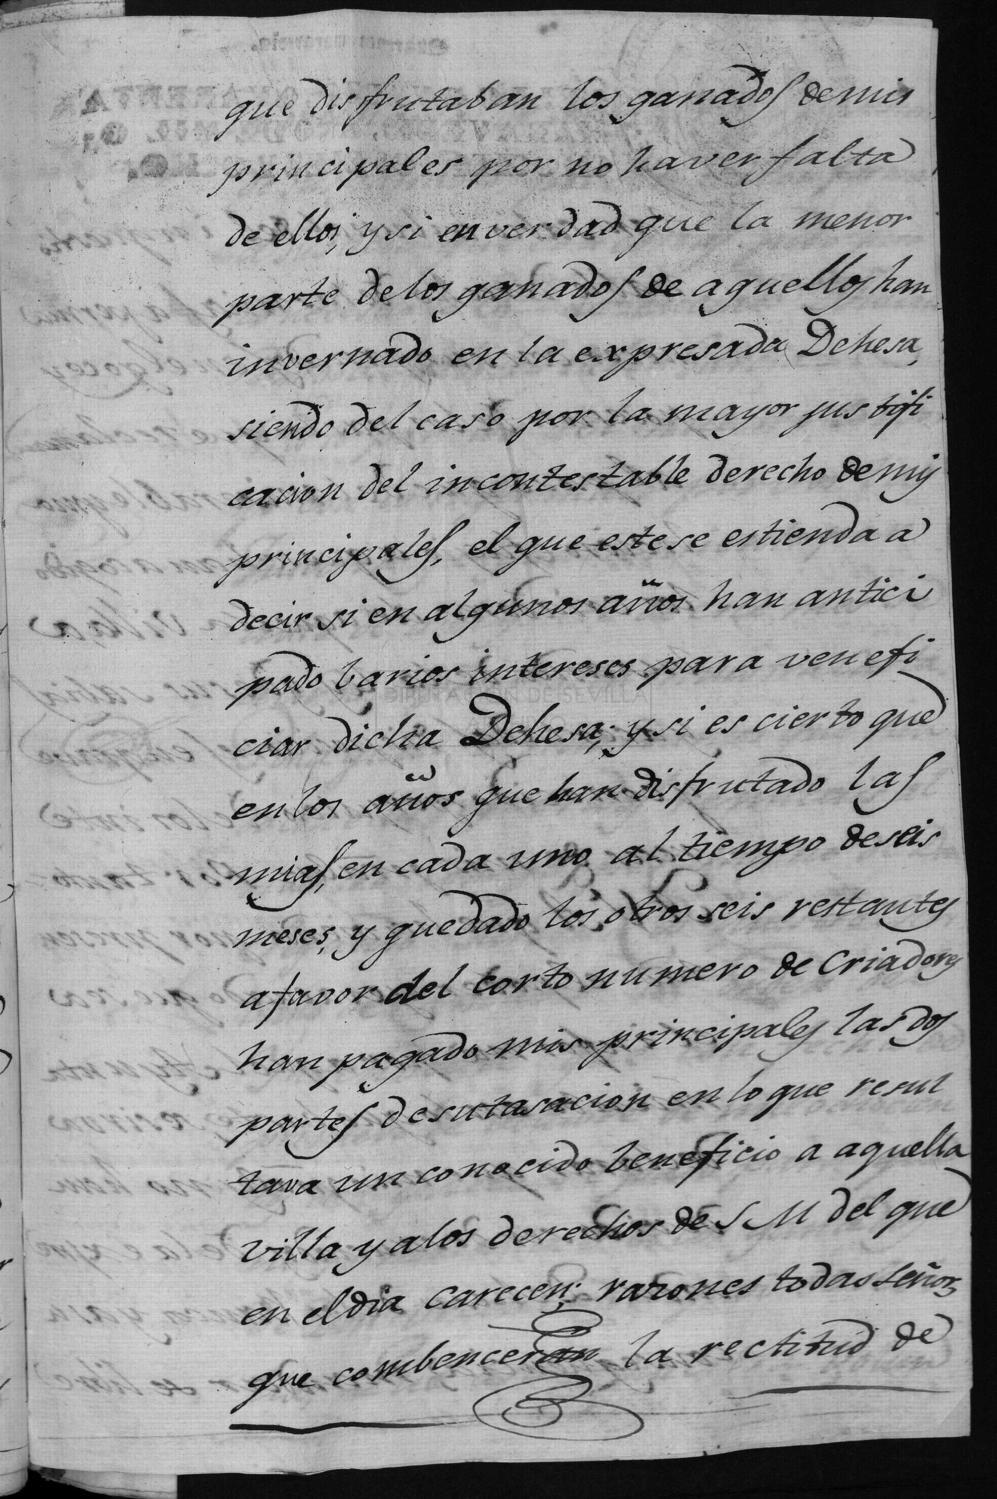 que disfrutaban los ganados de mis
principales por no haver falta
de ellos; y si en verdad que la menor
parte de los ganados de aquellos han
invernado en la expresada Dehesa,
siendo del caso por la mayor justifi
cacion del incontestable derecho de mis
principales, el que este se estienda a
decir si en algunos años han antici
pado barios intereses para venefi
ciar dicha Dehesa; y si es cierto que
en los años que han disfrutado las
mias, en cada uno al tiempo de seis
meses, y quedado los otros seis restantes
a favor del corto numero de Criadores
han pagado mis principales las dos
partes de su tasacion en lo que resul
tava un conocido beneficio a aquella
villa y a los derechos de S M del que
en el dia carecen; razones todas señor,
que combenceran la rectitud de